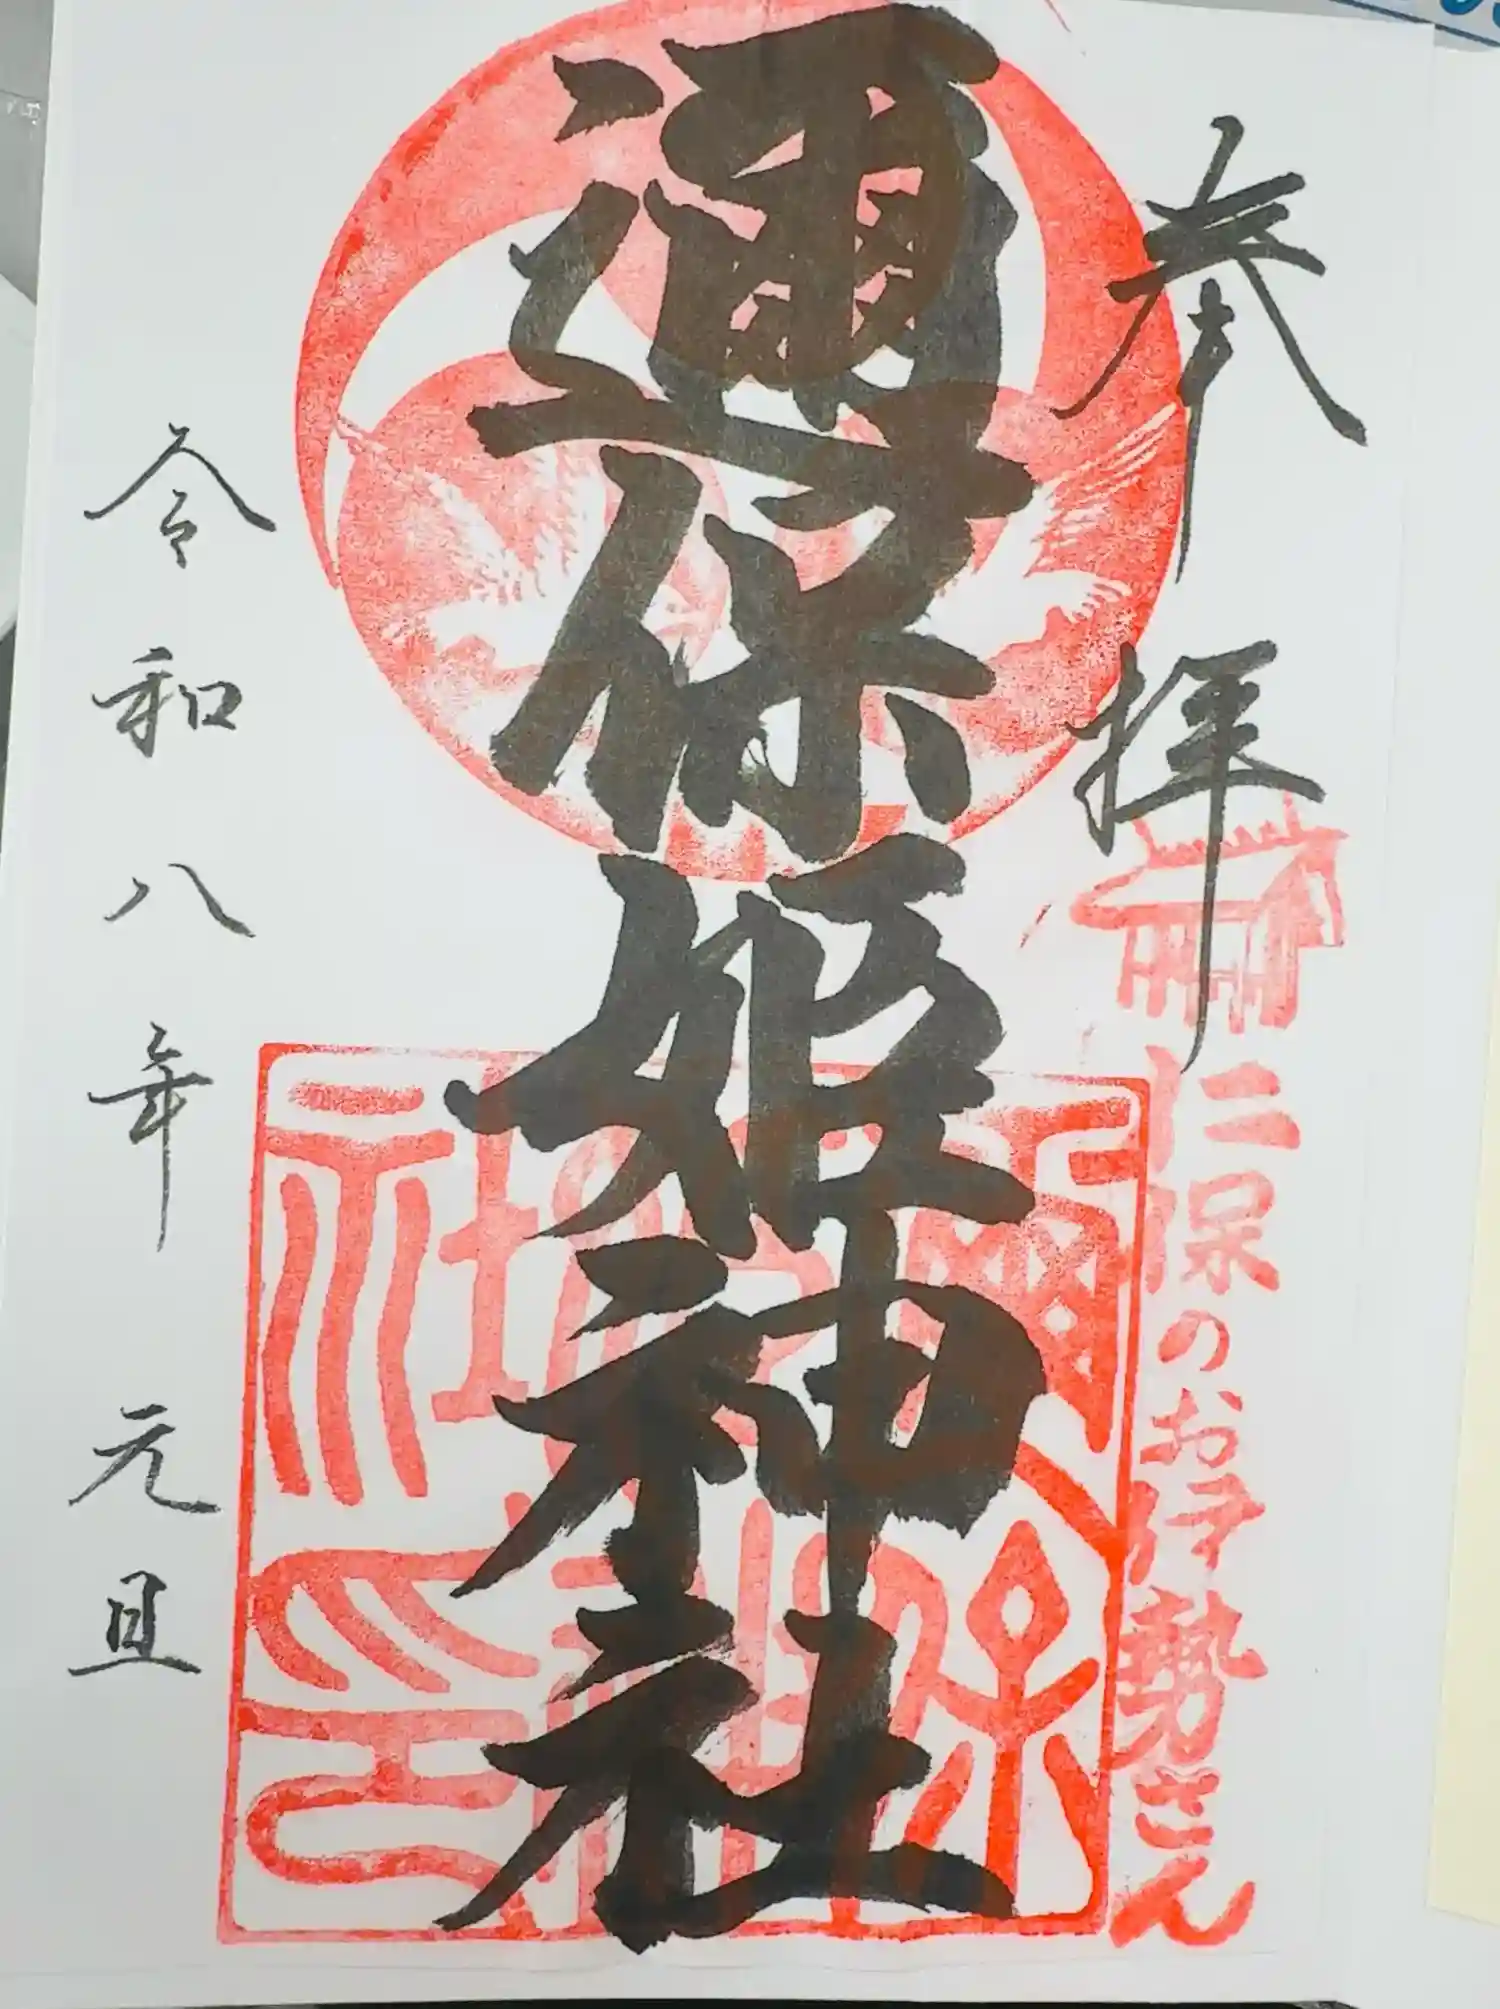 奉拝
仁保のお伊勢さん
邇保姫神社
令和八年 元旦